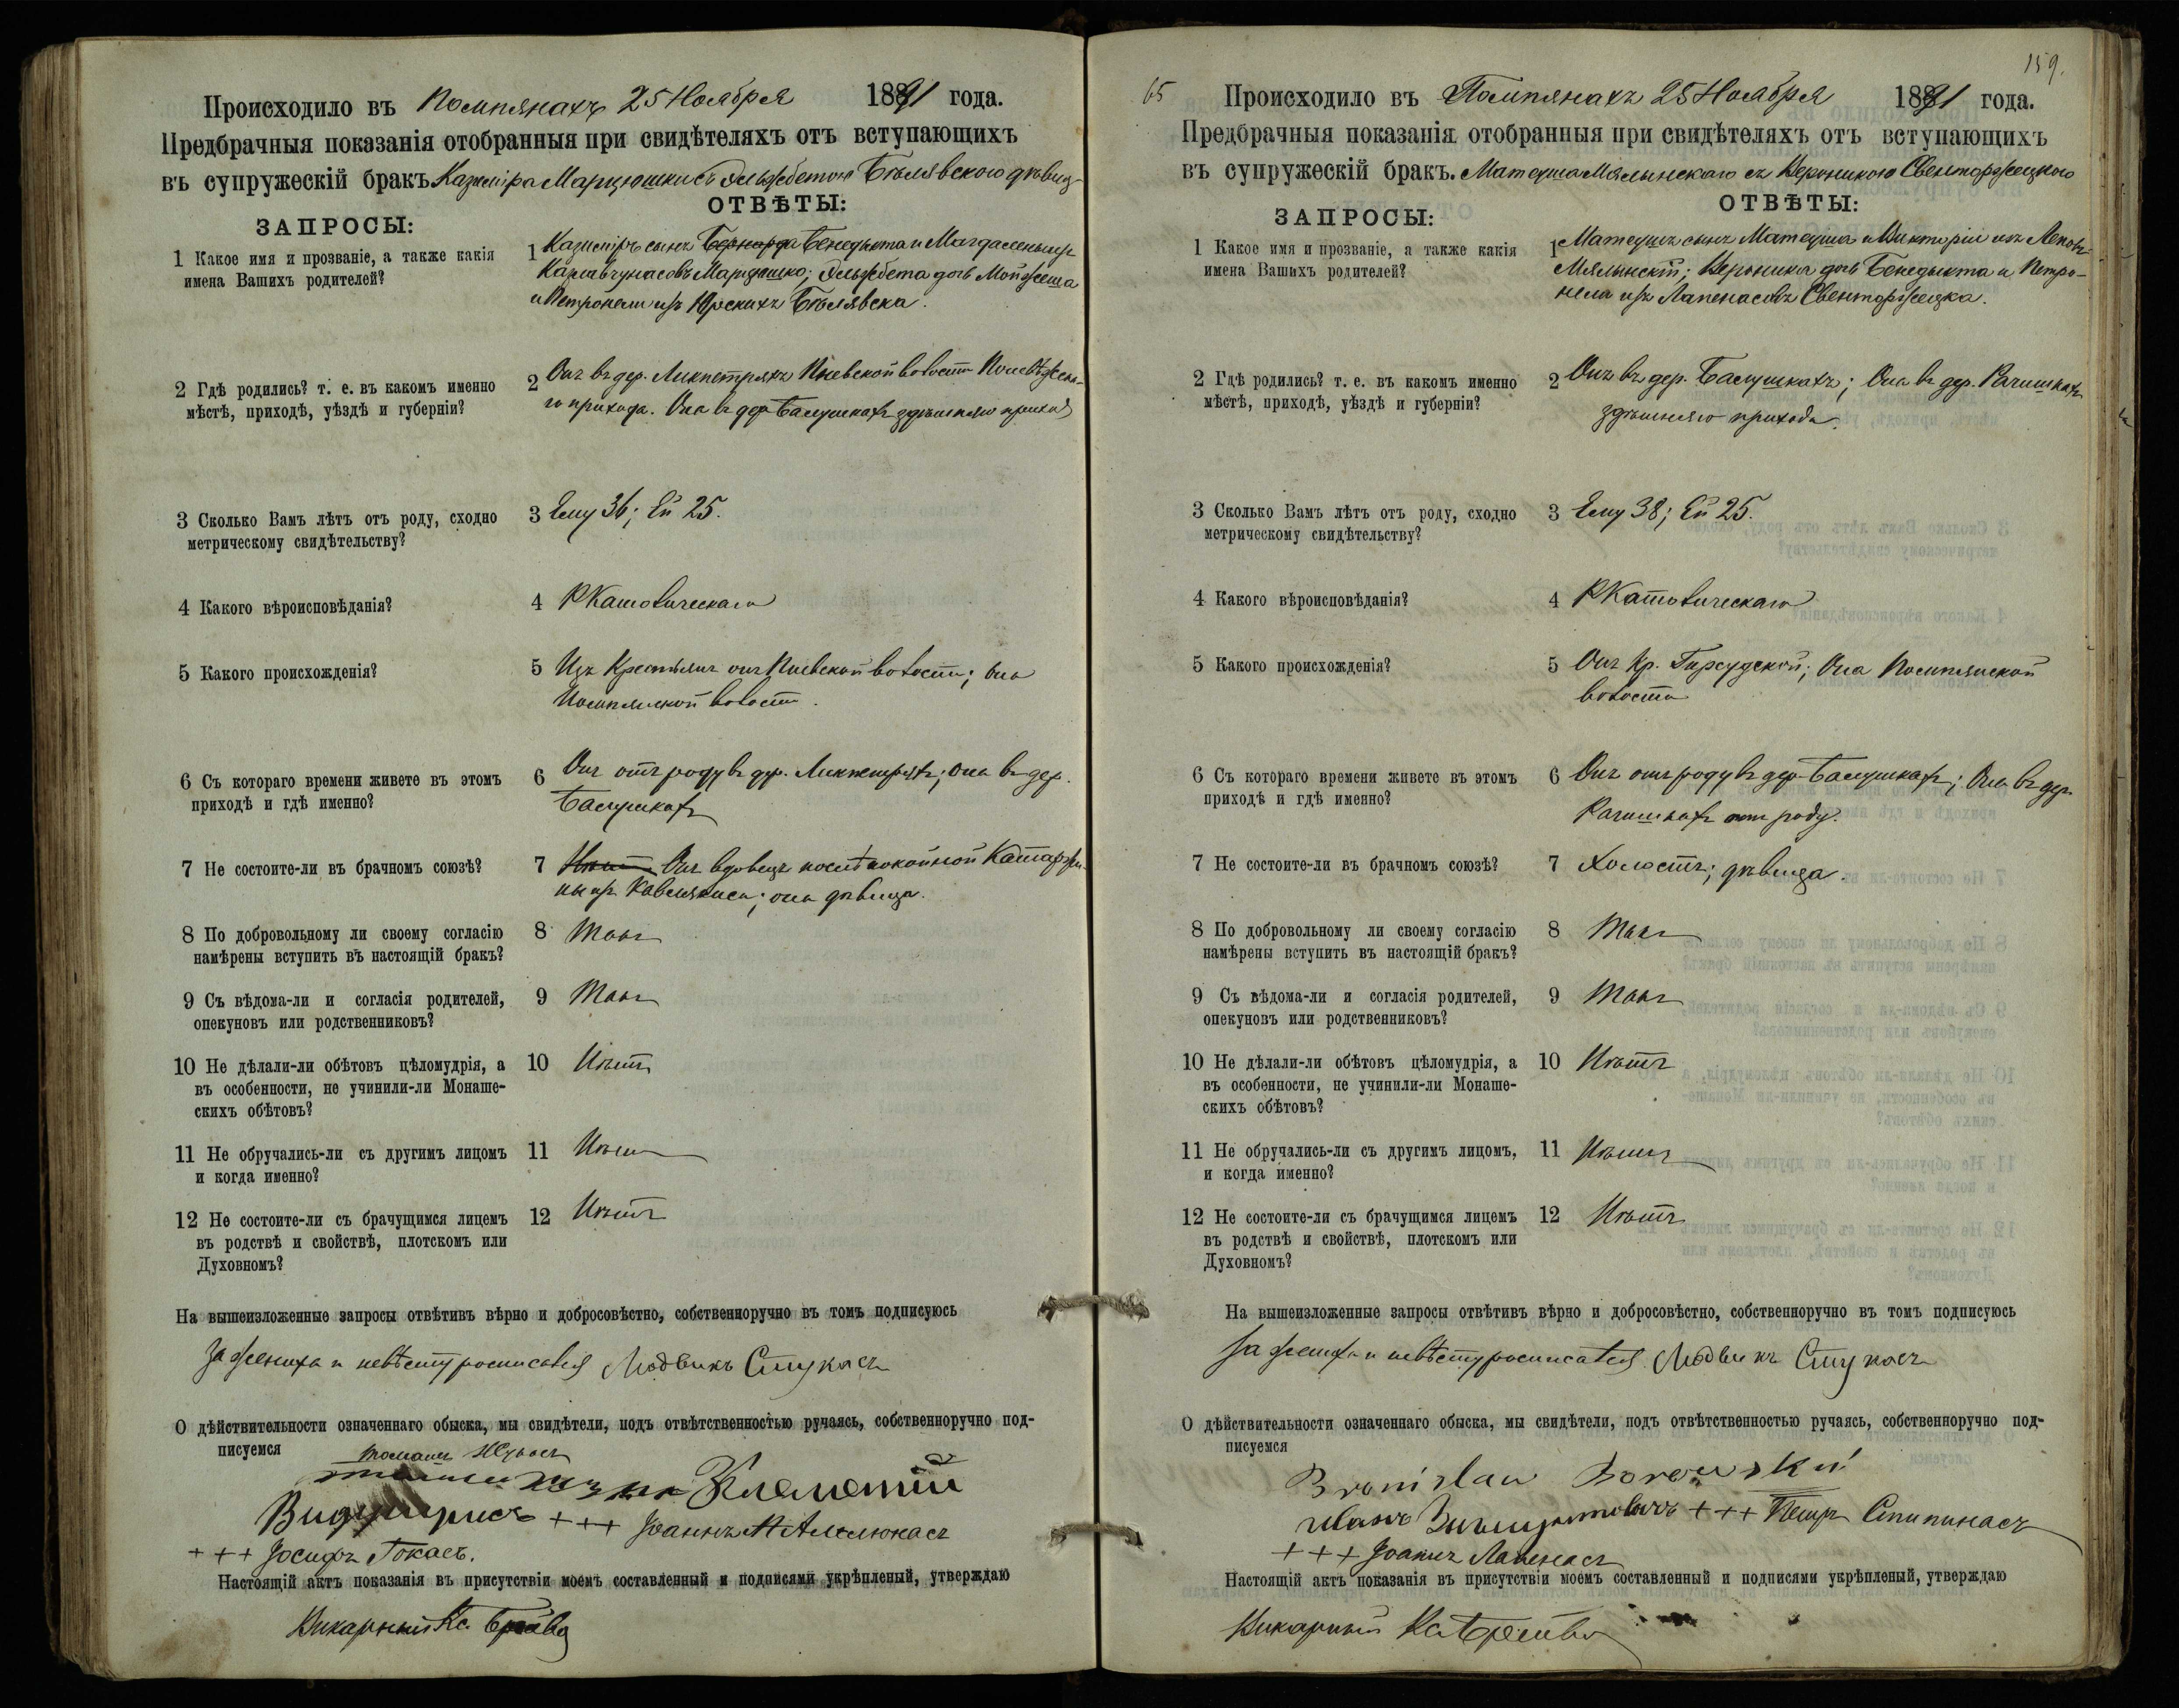 Происходило въ Помпянахъ 25 Ноября 1891 года.
Предбрачныя показанія отобранныя при свидѣтеляхъ отъ вступающихъ
въ супружескій бракъ Казиміра Марцюшки съ Эльжбетою Бѣлявскою дѣвиц.
ЗАПРОСЫ:
ОТВѢТЫ:
1 Какое имя и прозваніе, а также какія
имена Вашихъ родителей?
1 Казиміръ сынъ Бернарда Бенедыкта и Магдалены изъ
Марцюшко; Эльжбета дочь Мойжеша
и Петронели изъ Юрскихъ Бѣлявска.
2 Гдѣ родились? т. е. въ какомъ именно
мѣстѣ, приходѣ, уѣздѣ и губерніи?
2 Онъ въ дер. волости
го прихода. Она въ дер. Балушкахъ здѣшняго прихода
3 Сколько Вамъ лѣтъ отъ роду, сходно
метрическому свидѣтельству?
3 Ему 36; Ей 25.
4 Какого вѣроисповѣданія?
4 РКатолическаго
5 Какого происхожденія?
5 Изъ Крестьянъ онъ волости; она
Помпянской волости.
6 Съ котораго времени живете въ этомъ
приходѣ и гдѣ именно?
6 Онъ отъ роду въ дер. она въ дер.
Балушкахъ
7 Не состоите-ли въ брачномъ союзѣ?
7 Нѣтъ Онъ вдовецъ послѣ покойной Катаржи-
ны изъ она дѣвица.
8 По добровольному ли своему согласію
намѣрены вступить въ настоящій бракъ?
8 Такъ
9 Съ вѣдома-ли и согласія родителей,
опекуновъ или родственниковъ?
9 Такъ
10 Не дѣлали-ли обѣтовъ цѣломудрія, а
въ особенности, не учинили-ли Монаше-
скихъ обѣтовъ?
10 Нѣтъ
11 Не обручались-ли съ другимъ лицомъ
и когда именно?
11 Нѣтъ
12 Не состоите-ли съ брачущимся лицемъ
въ родствѣ и свойствѣ, плотскомъ или
Духовномъ?
12 Нѣтъ
На вышеизложенные запросы отвѣтивъ вѣрно и добросовѣстно, собственноручно въ томъ подписуюсь
За жениха и невѣсту росписался Людвикъ Стукасъ
О дѣйствительности означеннаго обыска, мы свидѣтели, подъ отвѣтственностью ручаясь, собственноручно под-
писуемся
Томашъ
+++ Іоаннъ
+++ Іосифъ Токасъ.
Настоящій актъ показанія въ присутствіи моемъ составленный и подписями укрѣпленый, утверждаю
Викарный Кс.
159.
65
Происходило въ Помпянахъ 25 Ноября 1891 года.
Предбрачныя показанія отобранныя при свидѣтеляхъ отъ вступающихъ
въ супружескій бракъ. Матеуша Мялынскаго съ Вероникою Свенторжецкою
ЗАПРОСЫ:
ОТВѢТЫ:
1 Какое имя и прозваніе, а также какія
имена Вашихъ родителей?
1 Матеушъ сынъ Матеуша и Викторіи изъ
Мялынскій; Вероника дочь Бенедыкта и Петро-
нели изъ Лапенасовъ Свенторжецка.
2 Гдѣ родились? т. е. въ какомъ именно
мѣстѣ, приходѣ, уѣздѣ и губерніи?
2 Онъ въ дер. Балушкахъ; Она въ дер. Рагишкахъ
здѣшняго прихода.
3 Сколько Вамъ лѣтъ отъ роду, сходно
метрическому свидѣтельству?
3 Ему 38; Ей 25.
4 Какого вѣроисповѣданія?
4 РКатолическаго
5 Какого происхожденія?
5 Онъ Кр. Гирсудской; Она Помпянской
волости
6 Съ котораго времени живете въ этомъ
приходѣ и гдѣ именно?
6 Онъ отъ роду въ дер. Балушкахъ; Она въ дер.
Рагишкахъ отъ роду.
7 Не состоите-ли въ брачномъ союзѣ?
7 Холостъ; дѣвица.
8 По добровольному ли своему согласію
намѣрены вступить въ настоящій бракъ?
8 Такъ
9 Съ вѣдома-ли и согласія родителей,
опекуновъ или родственниковъ?
9 Такъ
10 Не дѣлали-ли обѣтовъ цѣломудрія, а
въ особенности, не учинили-ли Монаше-
скихъ обѣтовъ?
10 Нѣтъ
11 Не обручались-ли съ другимъ лицомъ,
и когда именно?
11 Нѣтъ
12 Не состоите-ли съ брачущимся лицемъ
въ родствѣ и свойствѣ, плотскомъ или
Духовномъ?
12 Нѣтъ
На вышеизложенные запросы отвѣтивъ вѣрно и добросовѣстно, собственноручно въ томъ подписуюсь
За жениха и невѣсту росписался Людвикъ Стукасъ
О дѣйствительности означеннаго обыска, мы свидѣтели, подъ отвѣтственностью ручаясь, собственноручно под-
писуемся
Bronisław Borowski
Иванъ +++ Петръ Спипинасъ
+++ Іоаннъ Лапенасъ
Настоящій актъ показанія въ присутствіи моемъ составленный и подписями укрѣпленый, утверждаю
Викарный Кс.